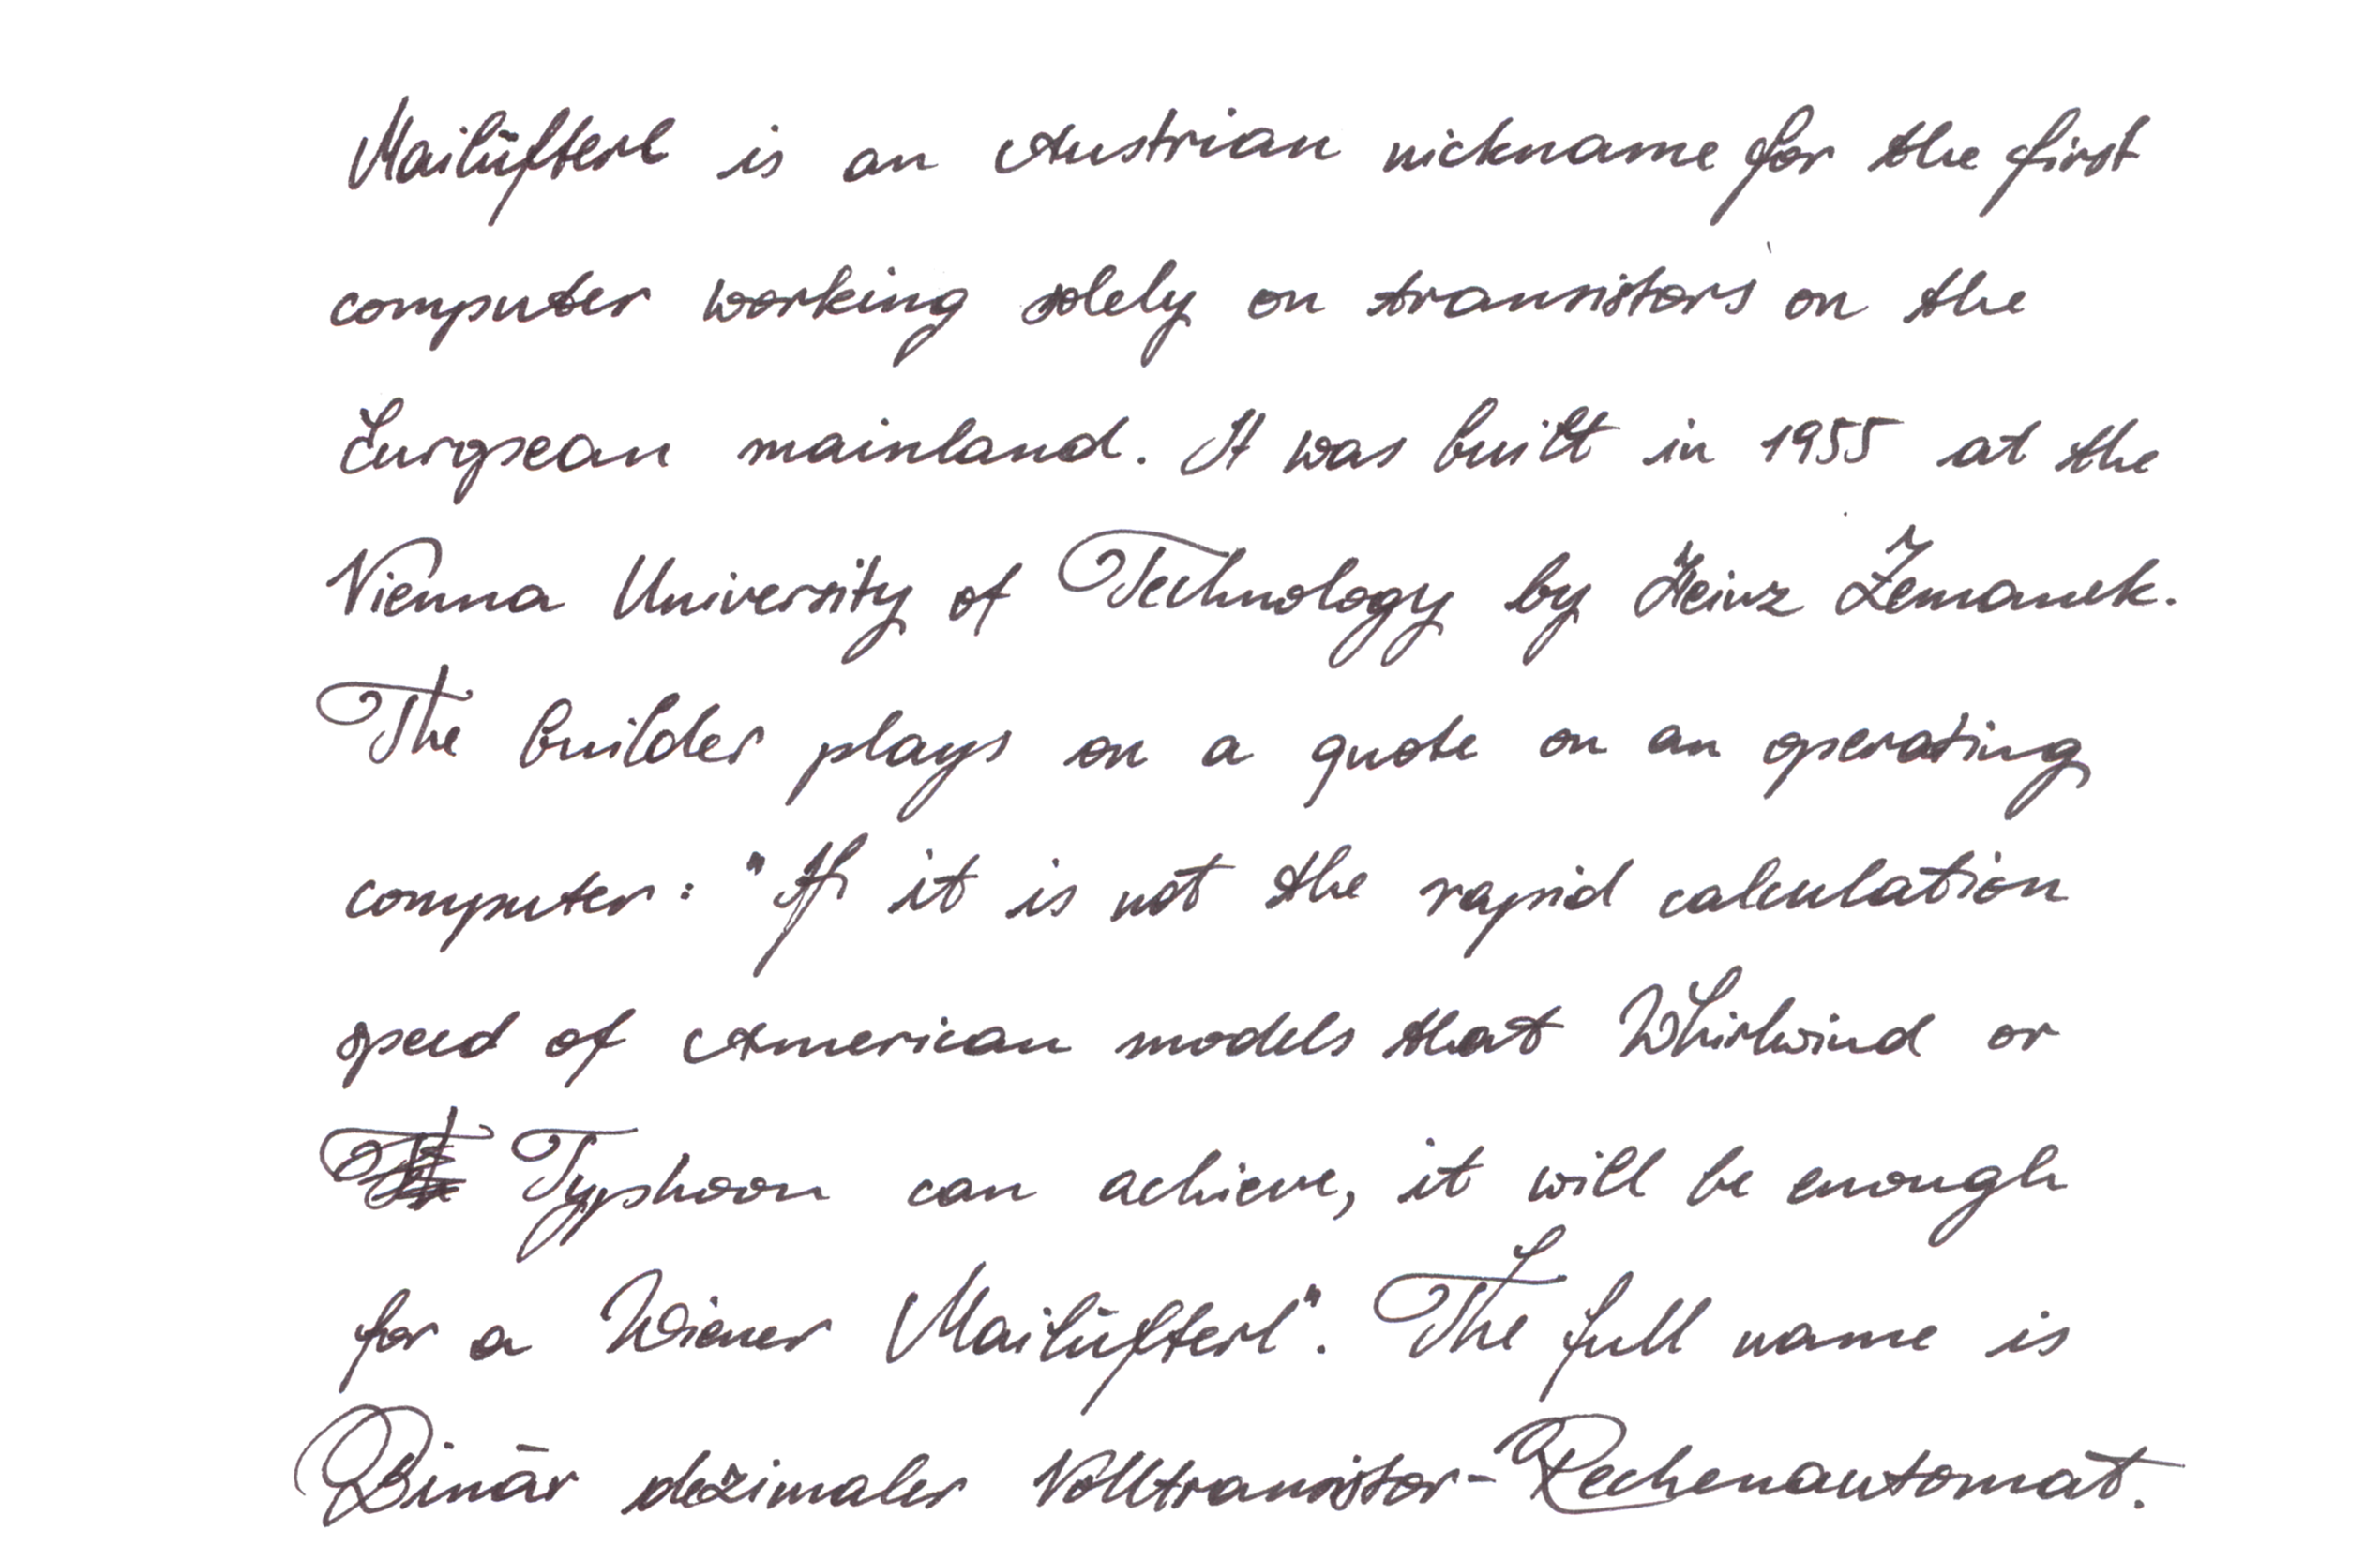 Mailüfterl is an Austrian nickname for the first
computer working solely on transistors on the
European mainland. It was built in 1955 at the
Vienna University of Technology by Heinz Zemanek.
The builder plays on a quote on an operating
computer: "If it is not the rapid calculation
speed of American models that Whirlwind or
Typhoon can achieve, it will be enough
for a Wiener Mailüfterl". The full name is
Binär dezimaler Volltransistor-Rechenautomat.